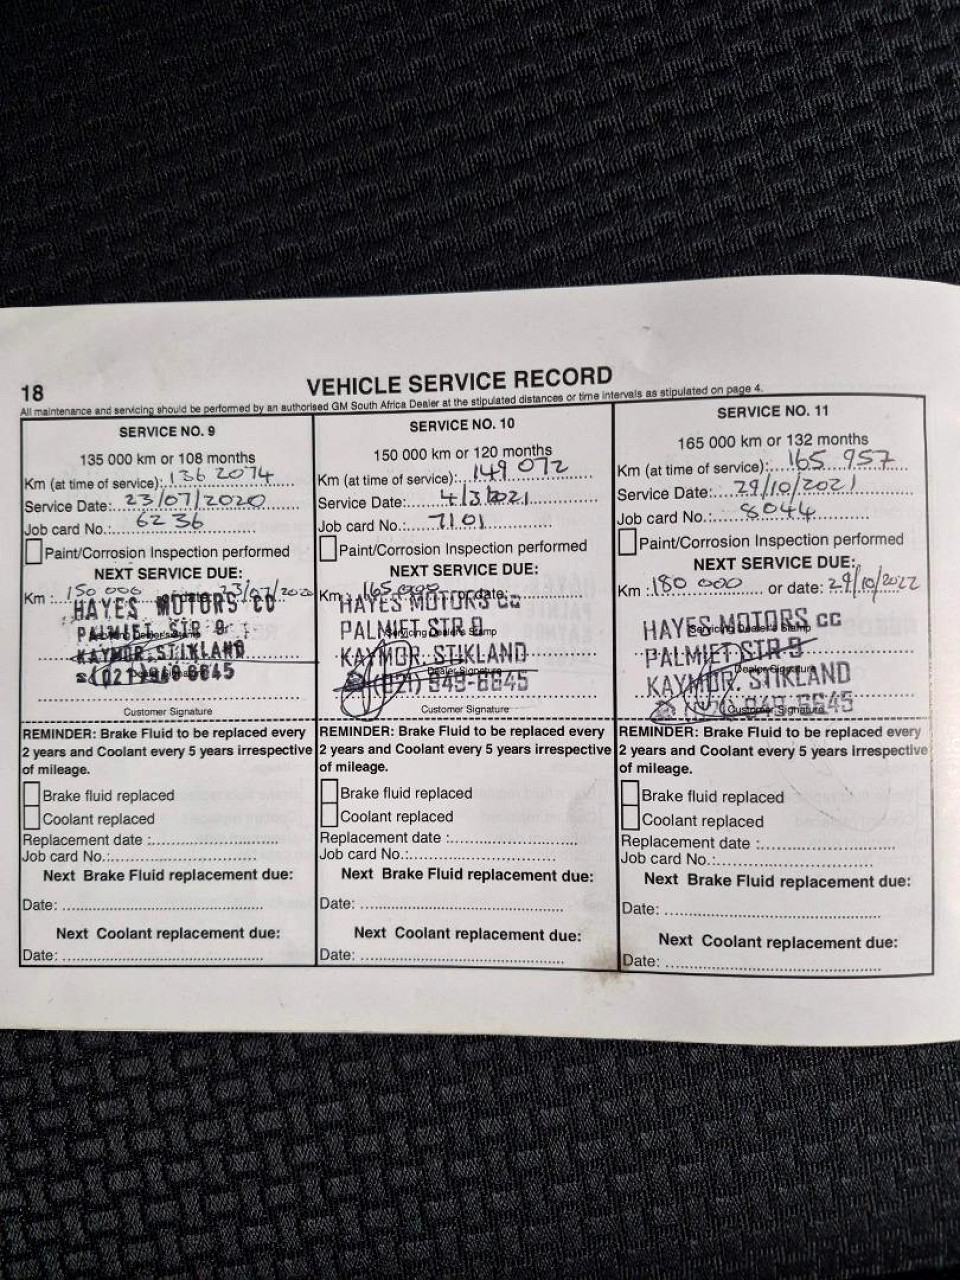 18
VEHICLE SERVICE RECORD
All maintenance and servicing should be performed by an authorised GM South Africa Dealer at the stipulated distances or time intervals as stipulated on page 4.
SERVICE NO. 9
135 000 km or 108 months
Km (at time of service): 136 2074
Service Date: 23/07/2020
Job card No.: 6236
Paint/Corrosion Inspection performed
NEXT SERVICE DUE:
Km : 150 000 or date: 23/07/2020
HAYES MOTORS CC
PALMIET STR 9
Servicing Dealer's Stamp
KAYMOR, STIKLAND
(021) 949-6645
Customer Signature
REMINDER: Brake Fluid to be replaced every
2 years and Coolant every 5 years irrespective
of mileage.
Brake fluid replaced
Coolant replaced
Replacement date :
Job card No.:
Next Brake Fluid replacement due:
Date:
Next Coolant replacement due:
Date:
SERVICE NO. 10
150 000 km or 120 months
Km (at time of service): 149 072
Service Date: 4/3/2021
Job card No.: 7101
Paint/Corrosion Inspection performed
NEXT SERVICE DUE:
Km : 165 000 or date:
HAYES MOTORS CC
PALMIET STR 9
Servicing Dealer's Stamp
KAYMOR, STIKLAND
Dealer Signature
(021) 949-6645
Customer Signature
REMINDER: Brake Fluid to be replaced every
2 years and Coolant every 5 years irrespective
of mileage.
Brake fluid replaced
Coolant replaced
Replacement date :
Job card No.:
Next Brake Fluid replacement due:
Date:
Next Coolant replacement due:
Date:
SERVICE NO. 11
165 000 km or 132 months
Km (at time of service): 165 957
Service Date: 29/10/2021
Job card No.: 8044
Paint/Corrosion Inspection performed
NEXT SERVICE DUE:
Km : 180 000 or date: 29/10/2022
HAYES MOTORS CC
Servicing Dealer's Stamp
PALMIET STR 9
Dealer Signature
KAYMOR, STIKLAND
Customer Signature
REMINDER: Brake Fluid to be replaced every
2 years and Coolant every 5 years irrespective
of mileage.
Brake fluid replaced
Coolant replaced
Replacement date :
Job card No.:
Next Brake Fluid replacement due:
Date:
Next Coolant replacement due:
Date: